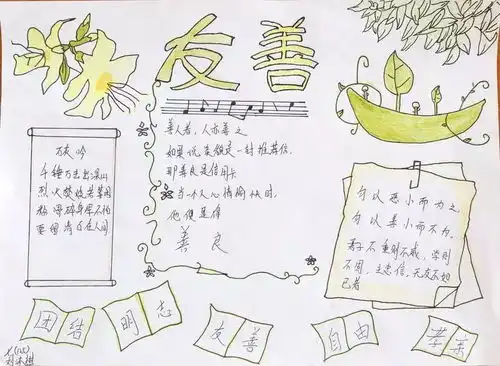 友善
石灰吟
千锤万击出深山
烈火焚烧若等闲
粉骨碎身浑不怕
要留清白在人间
善人者，人亦善之
如果说美貌是一封推荐信，
那善良是信用卡
当一个人心情愉快时，
他便显得
善良
勿以恶小而为之，
勿以善小而不为。
君子不重则不威，学则
不固，主忠信，无友不如
己者
团结
明志
友善
自由
孝亲